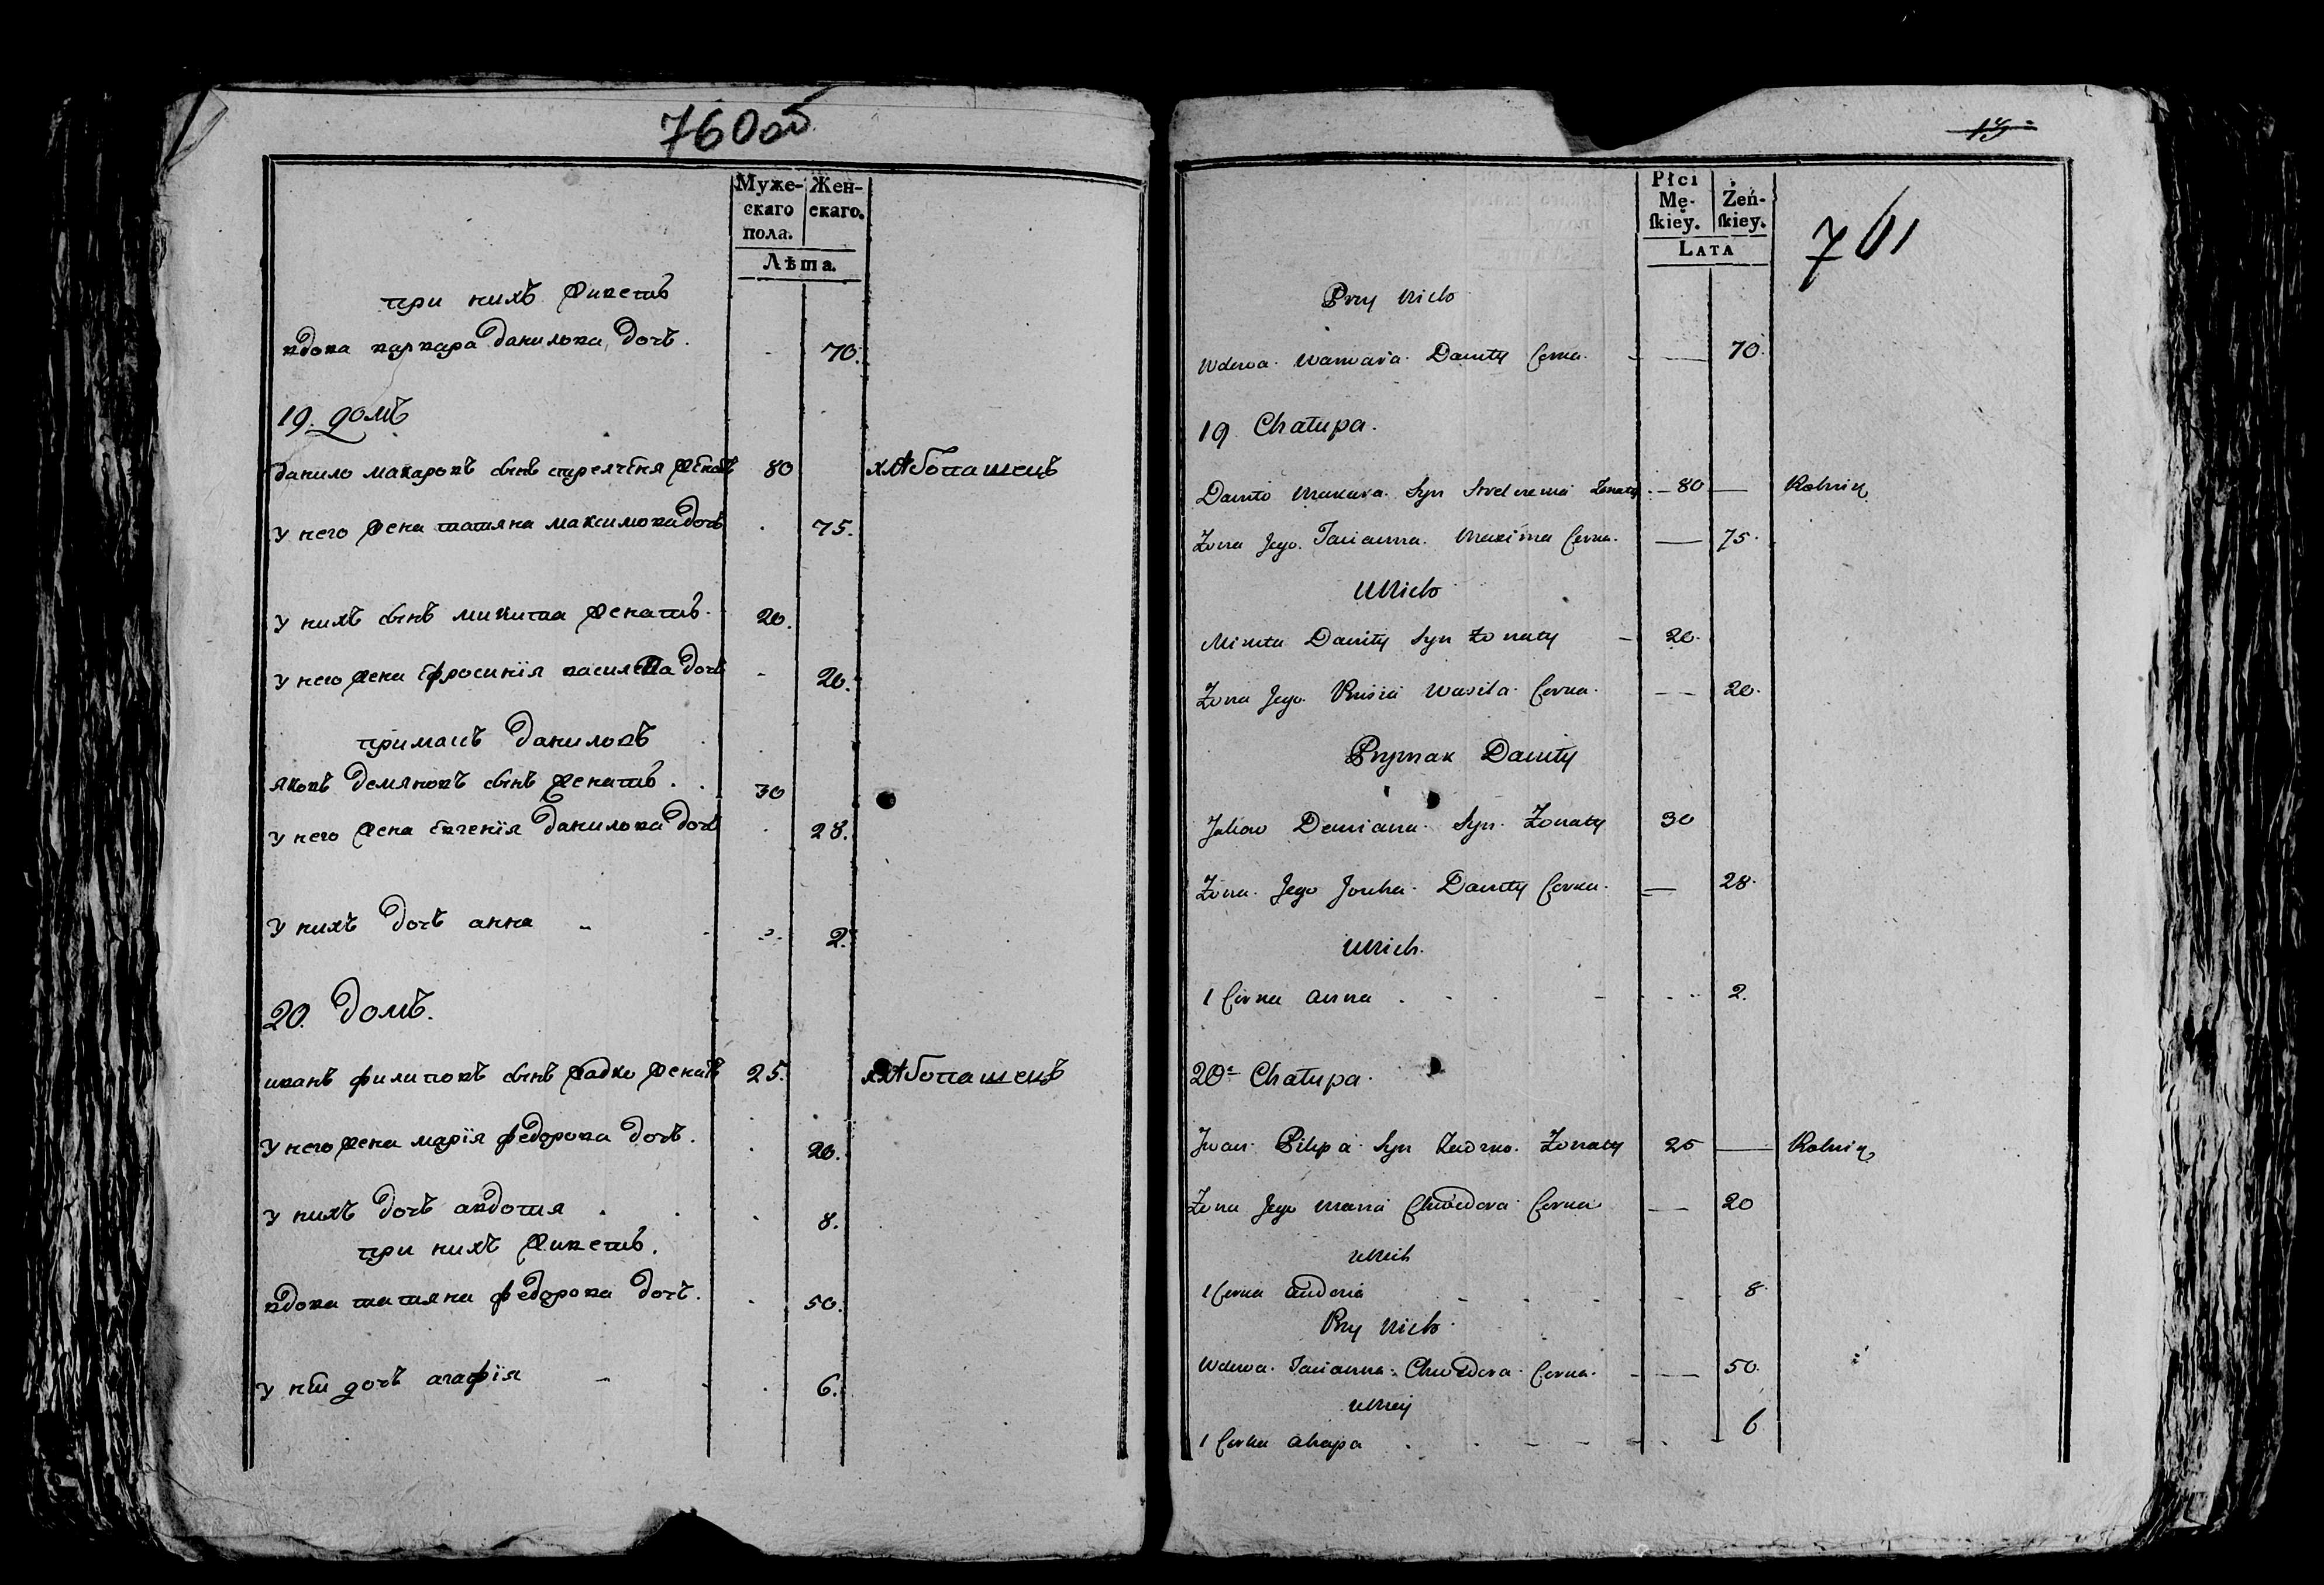 760об
Муже- Жен-
скаго скаго.
пола.
Лѣта.
при нихъ живетъ
вдова варвара данилова дочь. 70.
19. домъ
данило макаровъ сынъ стрелченя женатъ 80 хлѣбопашецъ
у него жена татяна максимова дочь 75.
у нихъ сынъ микита женатъ. 20.
у него жена ефросинїя василева дочь 20.
примакъ даниловъ
яковъ демяновъ сынъ женатъ. 30
у него жена евгенїя данилова дочь 28.
у нихъ дочь анна 2.
20. домъ.
иванъ филиповъ сынъ женатъ 25. хлѣбопашецъ
у него жена марїя федорова дочь. 20.
у нихъ дочь авдотия 8.
при нихъ живетъ.
вдова татяна федорова дочь. 50.
у ней дочь агафїя 6.
19
761
Płci
Mę- Żeń-
ſkiey. ſkiey.
LATA
Przy Nich
Wdowa Warwara Daniły Corka. 70.
19 Chałupa.
Daniło Makara Syn Żonaty 80 Rolnik
Żona Jego Tacianna Maxima Corka. 75.
U Nich
Mikita Daniły Syn Żonaty 20.
Żona Jego Wasila Corka. 20.
Prymak Daniły
Jakow Demiana Syn Żonaty 30
Żona Jego Jouha Daniły Corka. 28.
U Nich.
1 Corka Anna 2.
20 Chałupa.
Jwan Pilipa Syn Żonaty 25 Rolnik
Żona Jego Maria Chwedora Corka 20
U Nich
1 Corka Audocia 8.
Przy Nich
Wdowa Tacianna Chwedora Corka. 50.
U Niey
1 Corka Ahapa 6